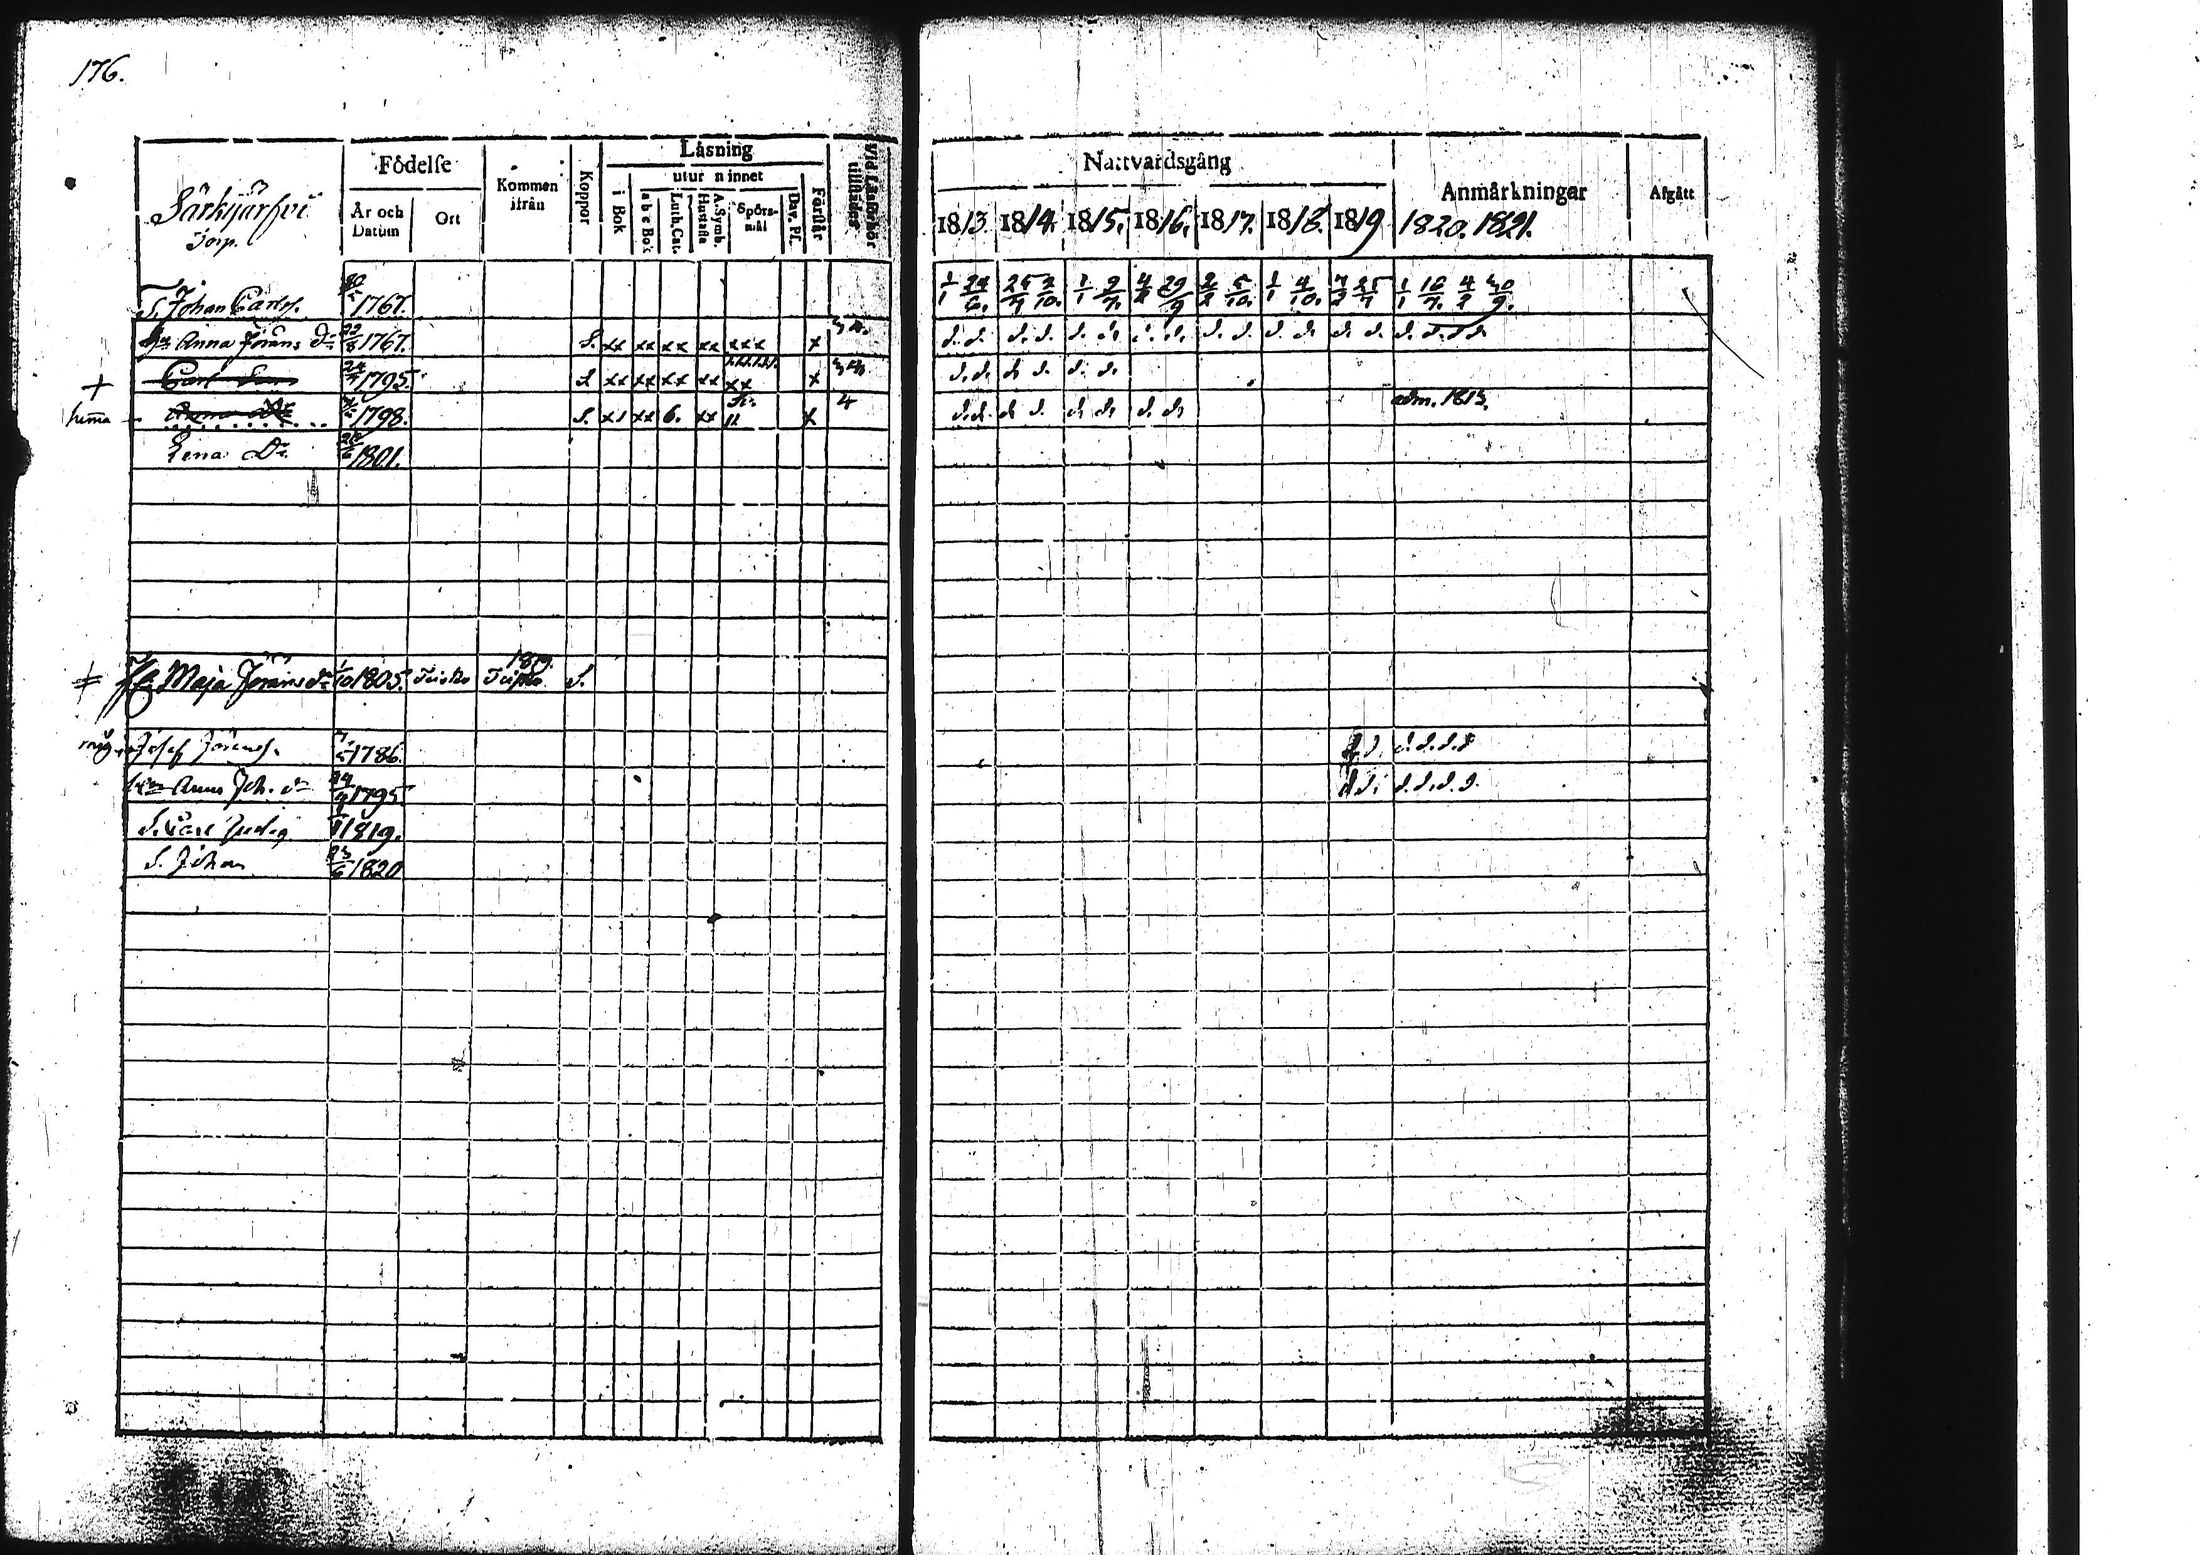 176.
Särkjärfvi
Torp.
Födelse
År och Datum
Ort
Kommen ifrån
Koppor
Läsning
i Bok
utur minnet
a b c Bok
Luth. Cat.
A. Symb. Hustafla
Spörsmål
Dav. Ps.
Förstår
Vid Läsförhör tillstädes
Nattvardsgång
1813 1814. 1815. 1816. 1817. 1818. 1819
Anmärkningar
1820. 1821.
Afgått
T. Johan Carls. 1767. 1/1 24/6. 25/4 2/10. 1/1 9/7. 4/2 29/9 2/2 5/10. 1/1 4/10. 7/2 25/7 1/1 16/7. 4/2
Hu Anna Jörans dr 22/8 1767. S. xx xx xx xx xxx x d. d. d. d. d. d. d. d. d. d. d. d. d. d. d. d. d. d.
+ Carl Son 24/7 1795. S xx xx xx xx xx x d. d. d. d. d. d.
1798. S. x1 xx 6. xx 11 x 4 d. d. d. d. d. d. d. d. adm. 1813.
Lena Dr. 1801.
Maja Jörans dr 1/10 1805. 1819. S.
1786. d. d. d. d. d. d
Anna Joh. dr 1795 d d. d. d. d. d.
S. Carl 1819.
S. Johan 23/6 1820